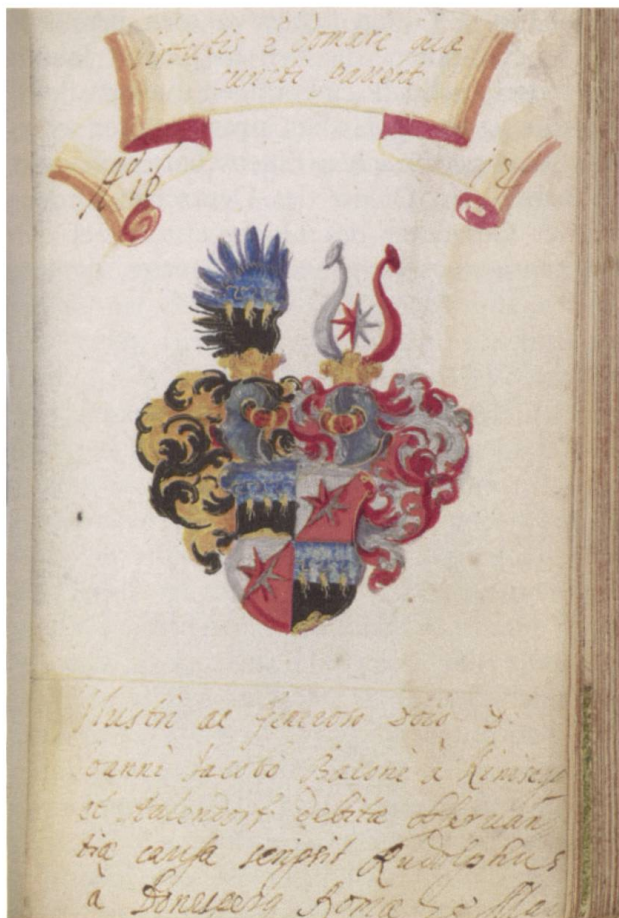 Virtutis è domare quæ
cuncti pauent
Aº 16 12
Illustri ac generoso Dño D.
Joanni Jacobo Baroni à Kinisegg
et Aulendorf debitæ obseruan
tiæ causa scripsit Rudolphus
à Bonesperg Romæ